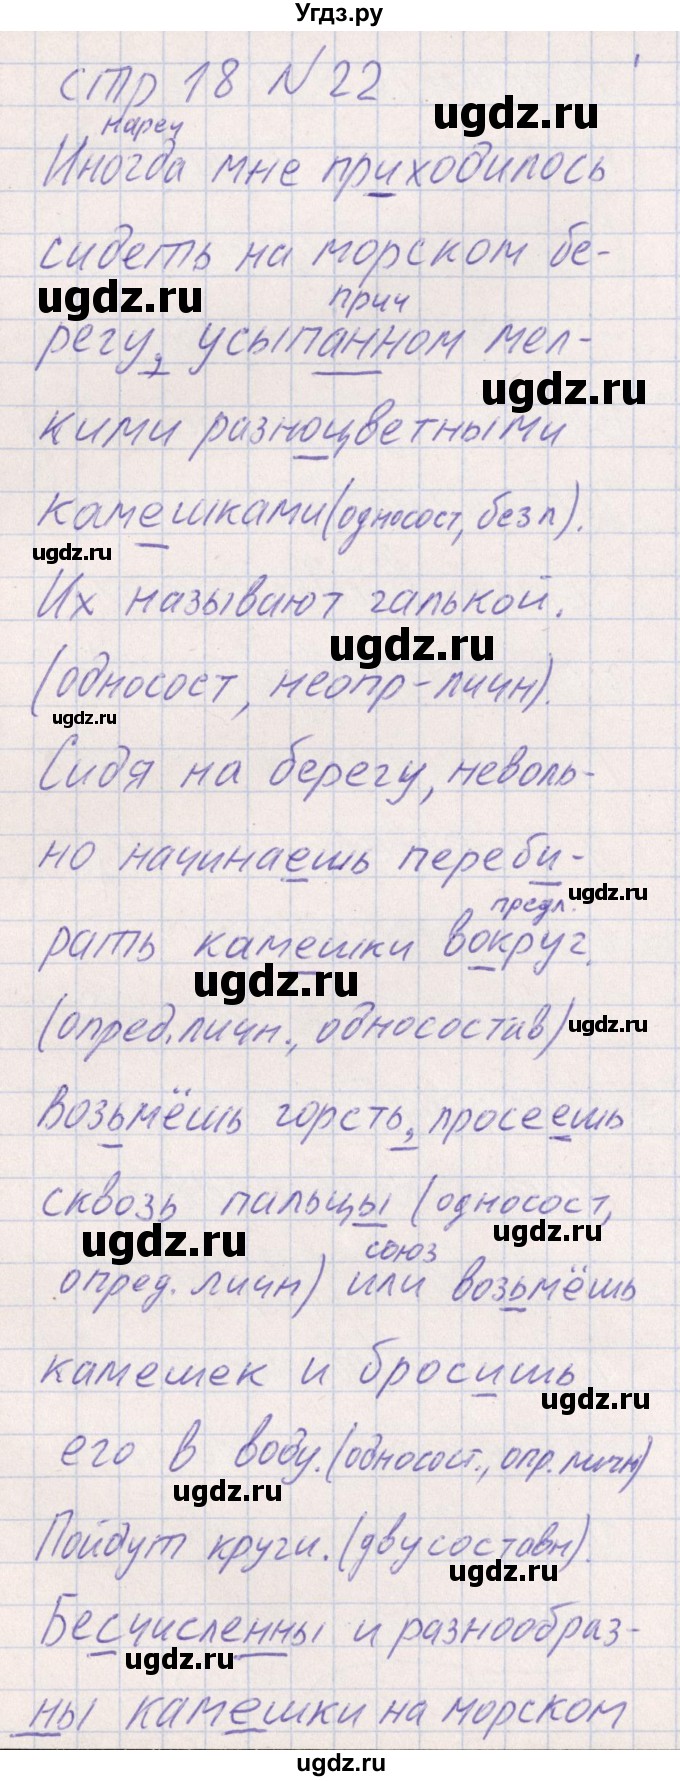 Угдз.ру
стр 18 № 22
ugdz.ru
нареч
Иногда мне приходилось
сидеть на морском бе-
ugdz.ru
прич
регу, усыпанном мел-
ugdz.ru
кими разноцветными
камешками (односост, безл).
ugdz.ru
Их называют галькой.
ugdz.ru
(односост, неопр-личн).
ugdz.ru
Сидя на берегу, неволь-
но начинаешь переби-
ugdz.ru
предл.
рать камешки вокруг.
ugdz.ru
(опред.личн., односостав)
ugdz.ru
Возьмёшь горсть, просеешь
сквозь пальцы (односост,
ugdz.ru
ugdz.ru
союз
опред. личн) или возьмёшь
камешек и бросишь
ugdz.ru
его в воду. (односост., опр. личн)
ugdz.ru
Пойдут круги. (двусоставн).
ugdz.ru
Бесчисленны и разнообраз-
ugdz.ru
ны камешки на морском
ugdz.ru